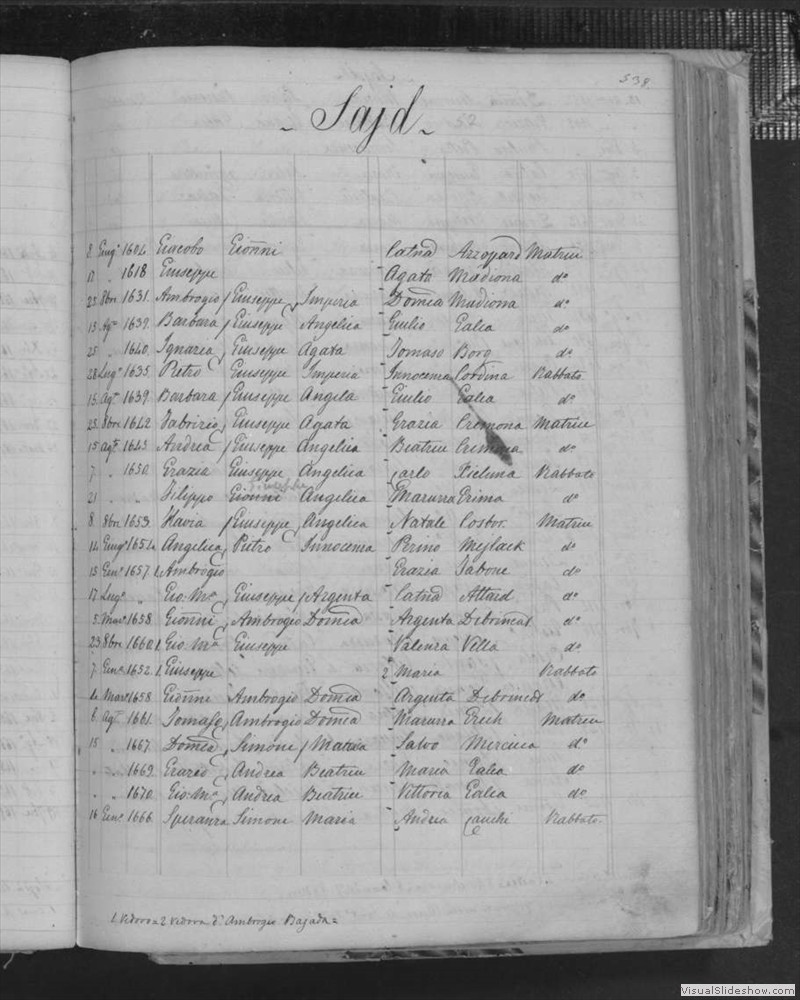 538.
- Sajd -
8 Giug.º 1604 Giacobo Gioñni Catnã Azzopard Matrice
17 „ 1618 Giuseppe Agata Madiona dº
25 8bre 1631. Ambrogio Giuseppe Imperia Domẽa Madiona dº
15 Agto 1639. Barbara Giuseppe Angelica Giulio Galea dº
25 „ 1640. Ignazia Giuseppe Agata Tomaso Borg dº
28 Lugº 1635. Pietro Giuseppe Imperia Innocenza Cordina Rabbato
15 Agto 1639. Barbara Giuseppe Angela Giulio Galea dº
25 8bre 1642 Fabrizio Giuseppe Agata Grazia Cremona Matrice
15 agto 1645 Andrea Giuseppe Angelica Beatrice dº
7 „ 1650 Grazia Giuseppe Angelica Carlo Xicluna Rabbato
21 „ „ Filippo Gioñni Angelica Maruzza Grima dº
8. 8bre 1653. Flavia Giuseppe Angelica Natale Matrice
14 Giugº 1654 Angelica Pietro Innocenza Perino Mejlack dº
15 Genº 1657 1 Ambrogio Grazia Tabone dº
17 Lugº „ Gio: Mª Giuseppe Argenta Catnã Attard dº
5 Marº 1658 Gioñni Ambrogio Domẽa Argenta Debrincat dº
23 8bre 1660 1. Gio. Mª Giuseppe Valenza Vella dº
7 Genº 1652. 1. Giuseppe 2 Maria Rabbato
4 Marº 1658 Gioñni Ambrogio Domẽa Argenta Debrincat dº
6 Agto 1661. Tomaso Ambrogio Domẽa Maruzza Grech Matrice
15 „ 1667. Domẽa Simone Matteia Salvo Mercieca dº
„ „ 1669. Grazio Andrea Beatrice Maria Galea dº
„ „ 1670. Gio: Mª Andrea Beatrice Vittoria Galea dº
16 Genº 1666 Speranza Simone Maria Andrea Gauchi Rabbato
1. Vedovo = 2 Vedova d'Ambrogio Bajada =
VisualSlideshow.com